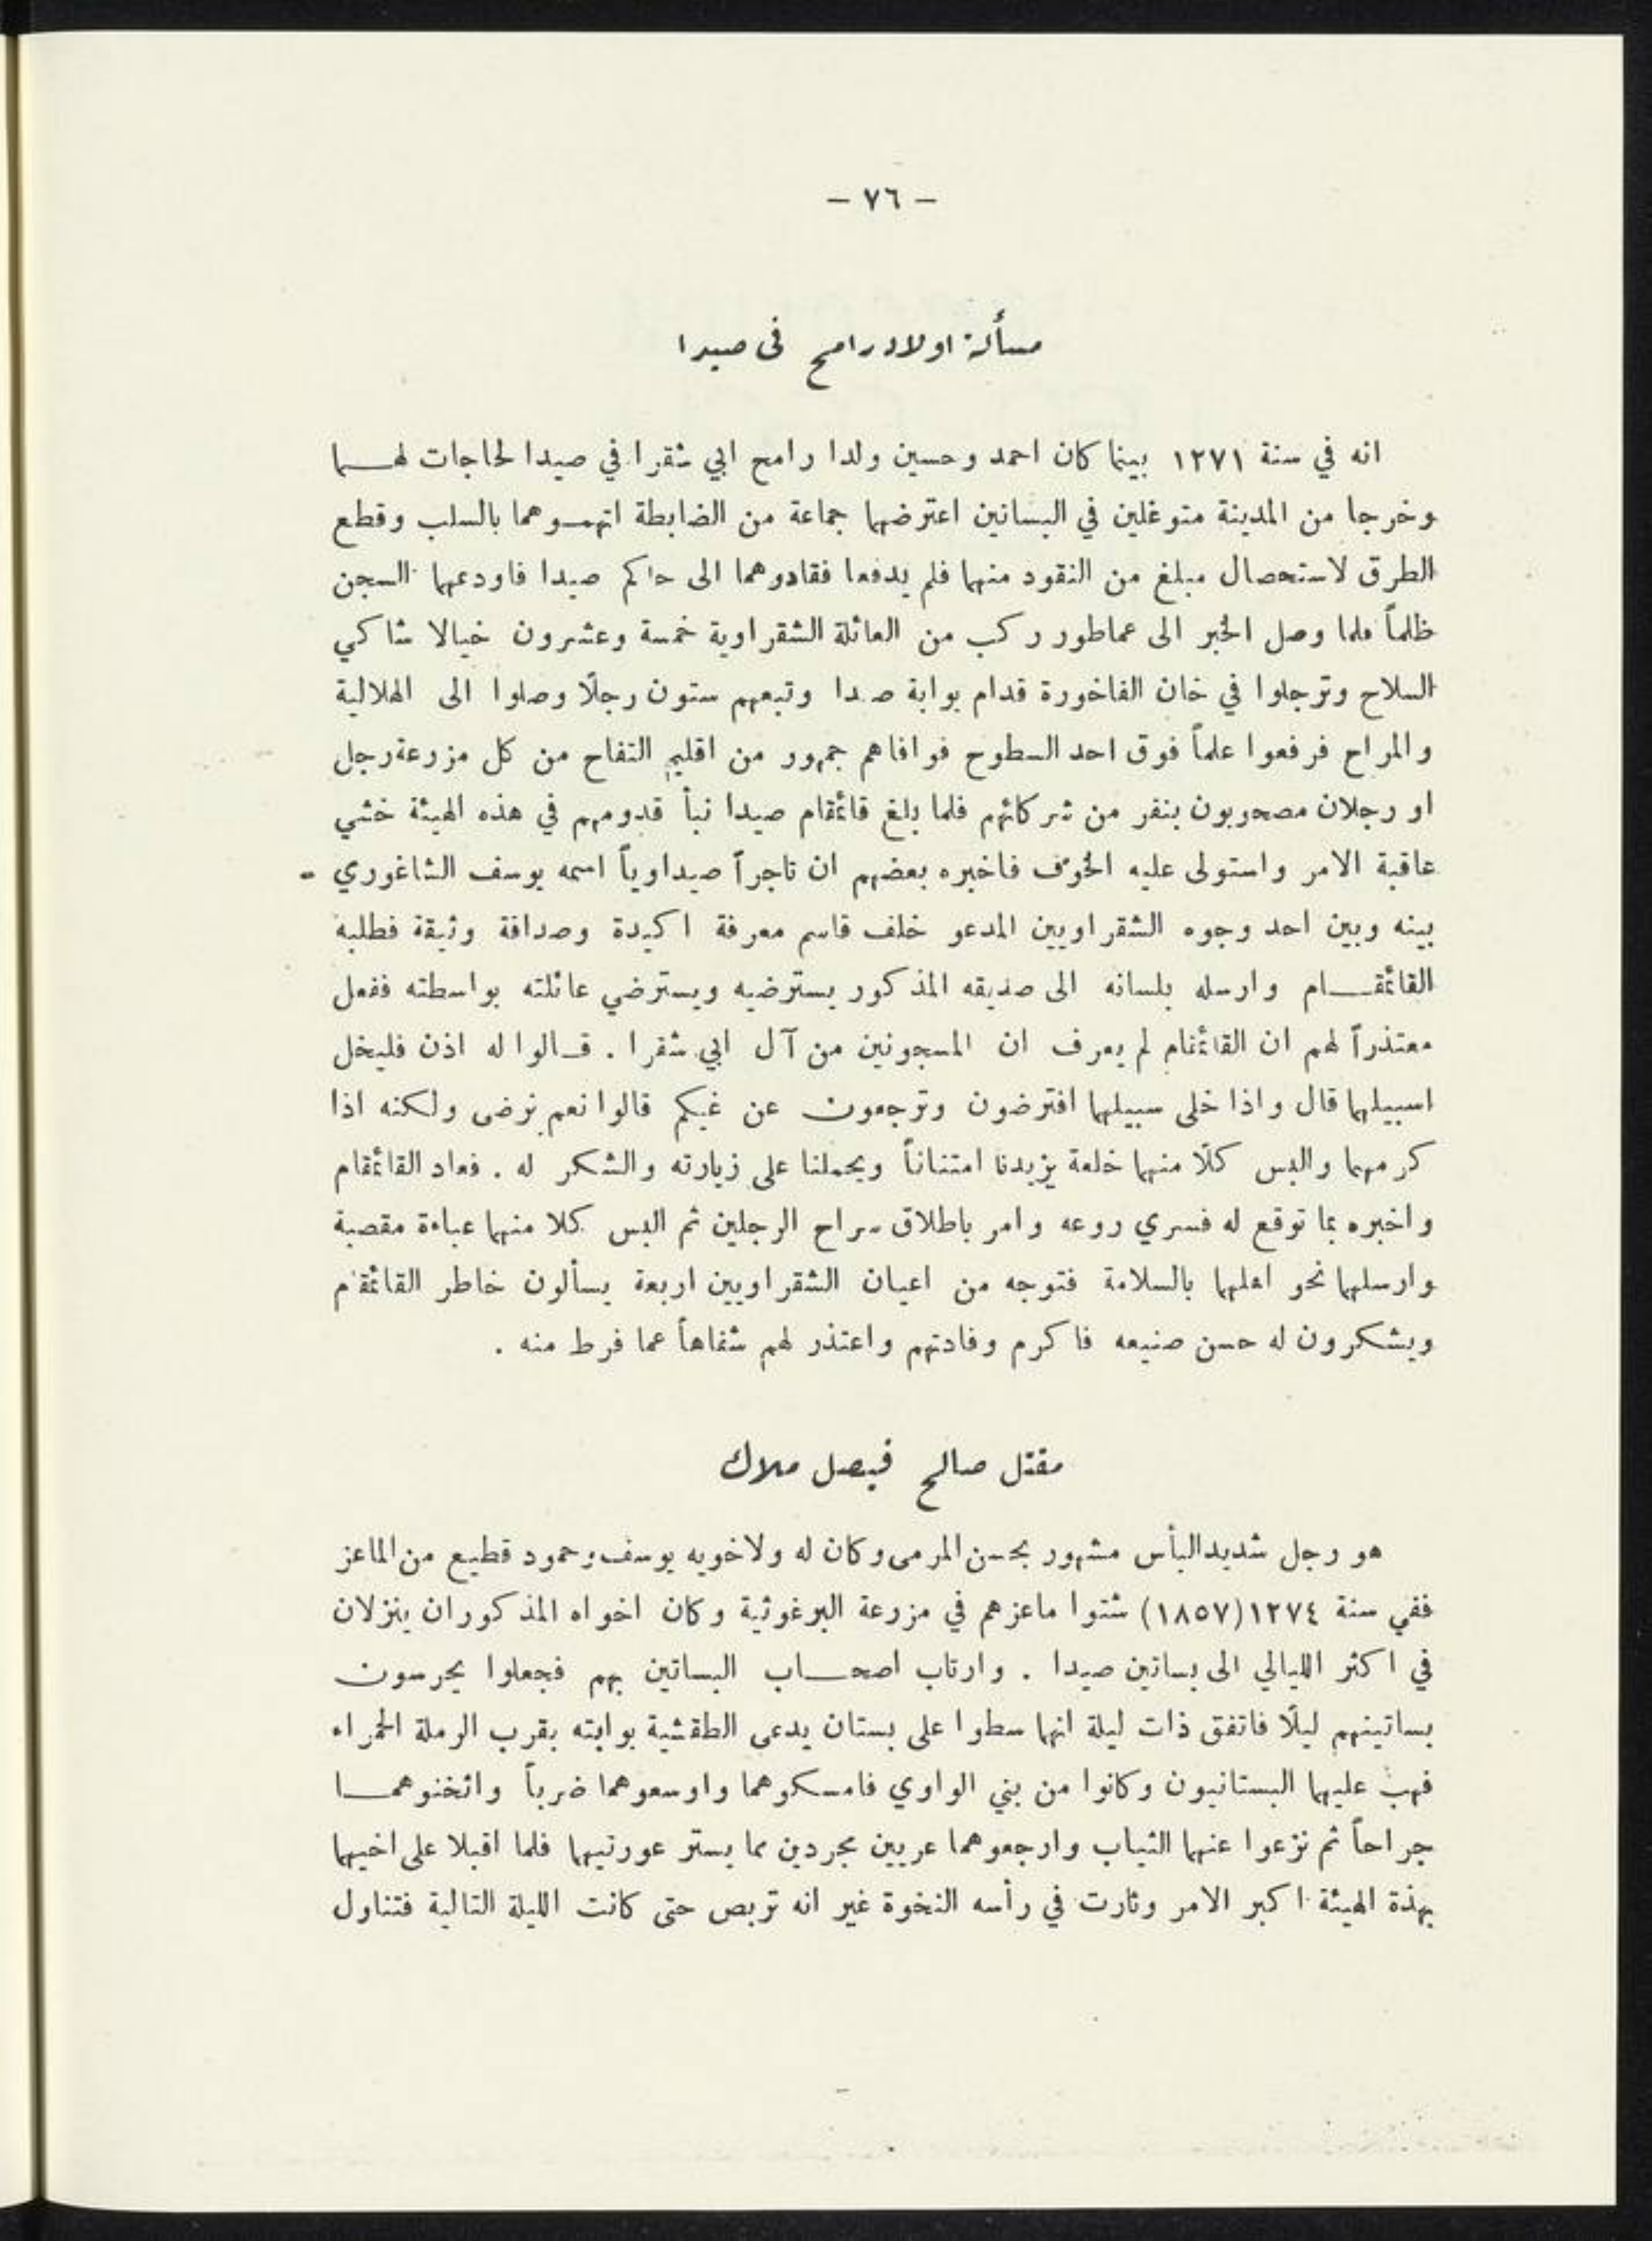 - ٧٦ -
مسألة اولاد رامح في صيدا
انه في سنة ١٢٧١ بينما كان احمد وحسين ولدا رامح ابي شقرا في صيدا لحاجات لهـــما
وخرجا من المدينة متوغلين في البساتين اعترضهما جماعة من الضابطة اتهمـوهما بالسلب وقطع
الطرق لاستحصال مبلغ من النقود منهما فلم يدفعا فقادوهما الى حاكم صيدا فاودعهما السجن
ظلماً فلما وصل الخبر الى عماطور ركب من العائلة الشقراوية خمسة وعشرون خيالا شاكي
السلاح وترجلوا في خان الفاخورة قدام بوابة صيدا وتبعهم ستون رجلًا وصلوا الى الهلالية
والمراح فرفعوا علماً فوق احد السطوح فوافاهم جمهور من اقليم التفاح من كل مزرعة رجل
او رجلان مصحوبون بنفر من شركائهم فلما بلغ قائمقام صيدا نبأ قدومهم في هذه الهيئة خشي
عاقبة الامر واستولى عليه الخوف فاخبره بعضهم ان تاجراً صيداوياً اسمه يوسف الشاغوري -
بينه وبين احد وجوه الشقراويين المدعو خلف قاسم معرفة اكيدة وصداقة وثيقة فطلبه
القائمقـــام وارسله بلسانه الى صديقه المذكور يسترضيه ويسترضي عائلته بواسطته ففعل
معتذراً لهم ان القائمقام لم يعرف ان المسجونين من آل ابي شقرا . قـالوا له اذن فليخل
اسبيلهما قال واذا خلى سبيلهما افترضون وترجعون عن غيكم قالوا نعم نرضى ولكنه اذا
كرمهما والبس كلًا منهما خلعة يزيدنا امتناناً ويحملنا على زيارته والشكر له . فعاد القائمقام
واخبره بما توقع له فسري روعه وامر باطلاق سراح الرجلين ثم البس كلا منهما عباءة مقصبة
وارسلهما نحو اهلهما بالسلامة فتوجه من اعيان الشقراويين اربعة يسألون خاطر القائمقام
ويشكرون له حسن صنيعه فاكرم وفادتهم واعتذر لهم شفاهاً عما فرط منه .
مقتل صالح فيصل ملاك
هو رجل شديد البأس مشهور بحسن المرمى وكان له ولاخويه يوسف وحمود قطيع من الماعز
ففي سنة ١٢٧٤ (١٨٥٧) شتوا ماعزهم في مزرعة البرغوثية وكان اخواه المذكوران ينزلان
في اكثر الليالي الى بساتين صيدا . وارتاب اصحـــاب البساتين بهم فجعلوا يحرسون
بساتينهم ليلًا فاتفق ذات ليلة انهما سطوا على بستان يدعى الطقشية بوابته بقرب الرملة الحمراء
فهب عليهما البستانيون وكانوا من بني الواوي فامسكوهما واوسعوهما ضرباً واثخنوهمـــا
جراحاً ثم نزعوا عنهما الثياب وارجعوهما عريين مجردين مما يستر عورتيهما فلما اقبلا على اخيهما
بهذة الهيئة اكبر الامر وثارت في رأسه النخوة غير انه تربص حتى كانت الليلة التالية فتناول